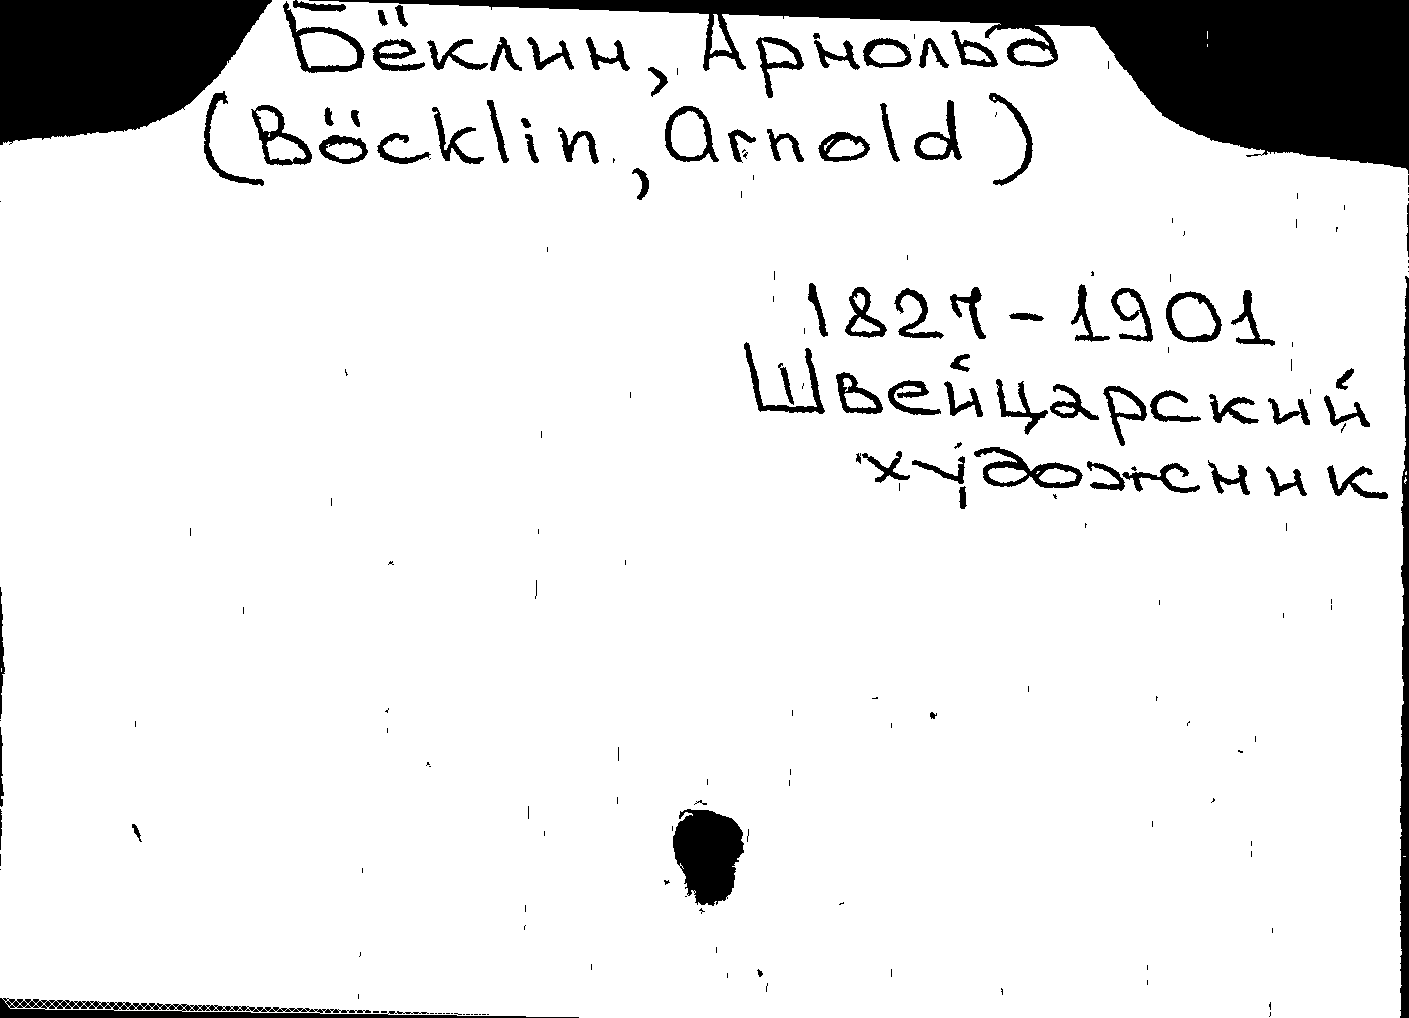 Бёклин, Арнольд
(Böcklin, Arnold)
1827-1901
Швейцарский
художник